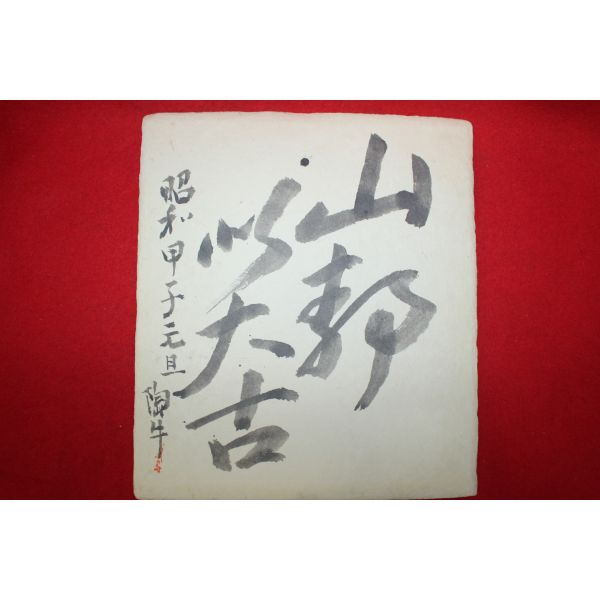 山静
以大古
昭和甲子元旦
陶牛